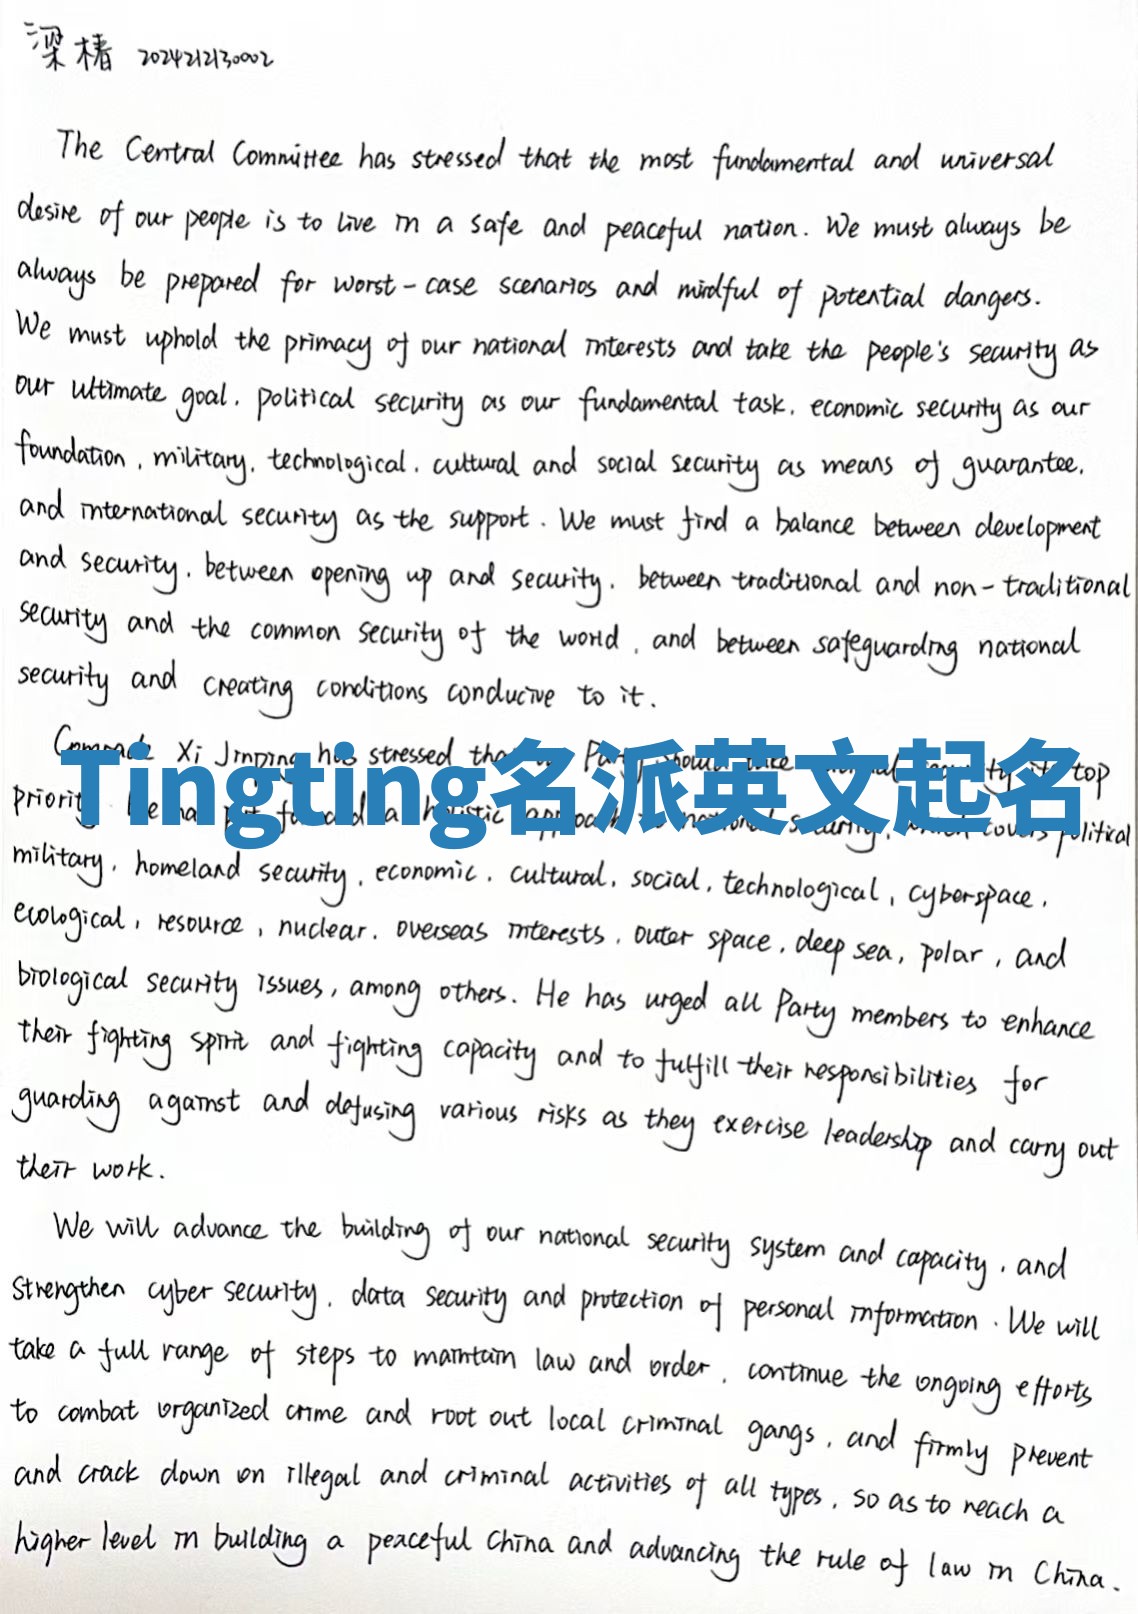 梁椿 2024212130002
The Central Committee has stressed that the most fundamental and universal
desire of our people is to live in a safe and peaceful nation. We must always be
always be prepared for worst-case scenarios and mindful of potential dangers.
We must uphold the primacy of our national interests and take the people's security as
our ultimate goal, political security as our fundamental task, economic security as our
foundation, military, technological, cultural and social security as means of guarantee,
and international security as the support. We must find a balance between development
and security, between opening up and security, between traditional and non-traditional
security and the common security of the world, and between safeguarding national
security and creating conditions conducive to it.
Comrade Xi Jinping has stressed top
Tingting名派英文起名
priority covers political
military, homeland security, economic, cultural, social, technological, cyberspace,
ecological, resource, nuclear, overseas interests, outer space, deep sea, polar, and
biological security issues, among others. He has urged all Party members to enhance
their fighting spirit and fighting capacity and to fulfill their responsibilities for
guarding against and defusing various risks as they exercise leadership and carry out
their work.
We will advance the building of our national security system and capacity, and
strengthen cyber security, data security and protection of personal information. We will
take a full range of steps to maintain law and order, continue the ongoing efforts
to combat organized crime and root out local criminal gangs, and firmly prevent
and crack down on illegal and criminal activities of all types, so as to reach a
higher level in building a peaceful China and advancing the rule of law in China.